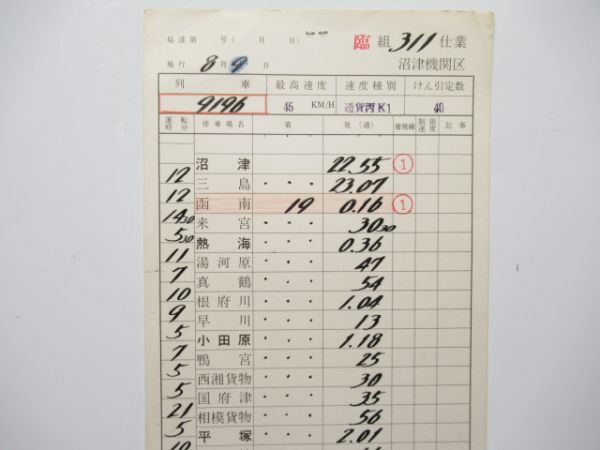 局達第 号(月 日)
臨 組 311 仕業
施行 8月9日 沼津機関区
列 車 最高速度 速度種別 けん引定数
9196 45 KM/H 通貨丙K1 40
運転時分 停車場名 着 発(通) 着発線 制限速度 記事
沼津 22.55 ①
12
三島 ・・・ 23.07
12
函南 19 0.16 ①
14 30
来宮 ・・・ 30 30
5 30
熱海 ・・・ 0.36
11
湯河原 ・・・ 47
7
真鶴 ・・・ 54
10
根府川 ・・・ 1.04
9
早川 ・・・ 13
5
小田原 ・・・ 1.18
7
鴨宮 ・・・ 25
5
西湘貨物 ・・・ 30
5
国府津 ・・・ 35
21
相模貨物 ・・・ 56
5
平塚 ・・・ 2.01
10